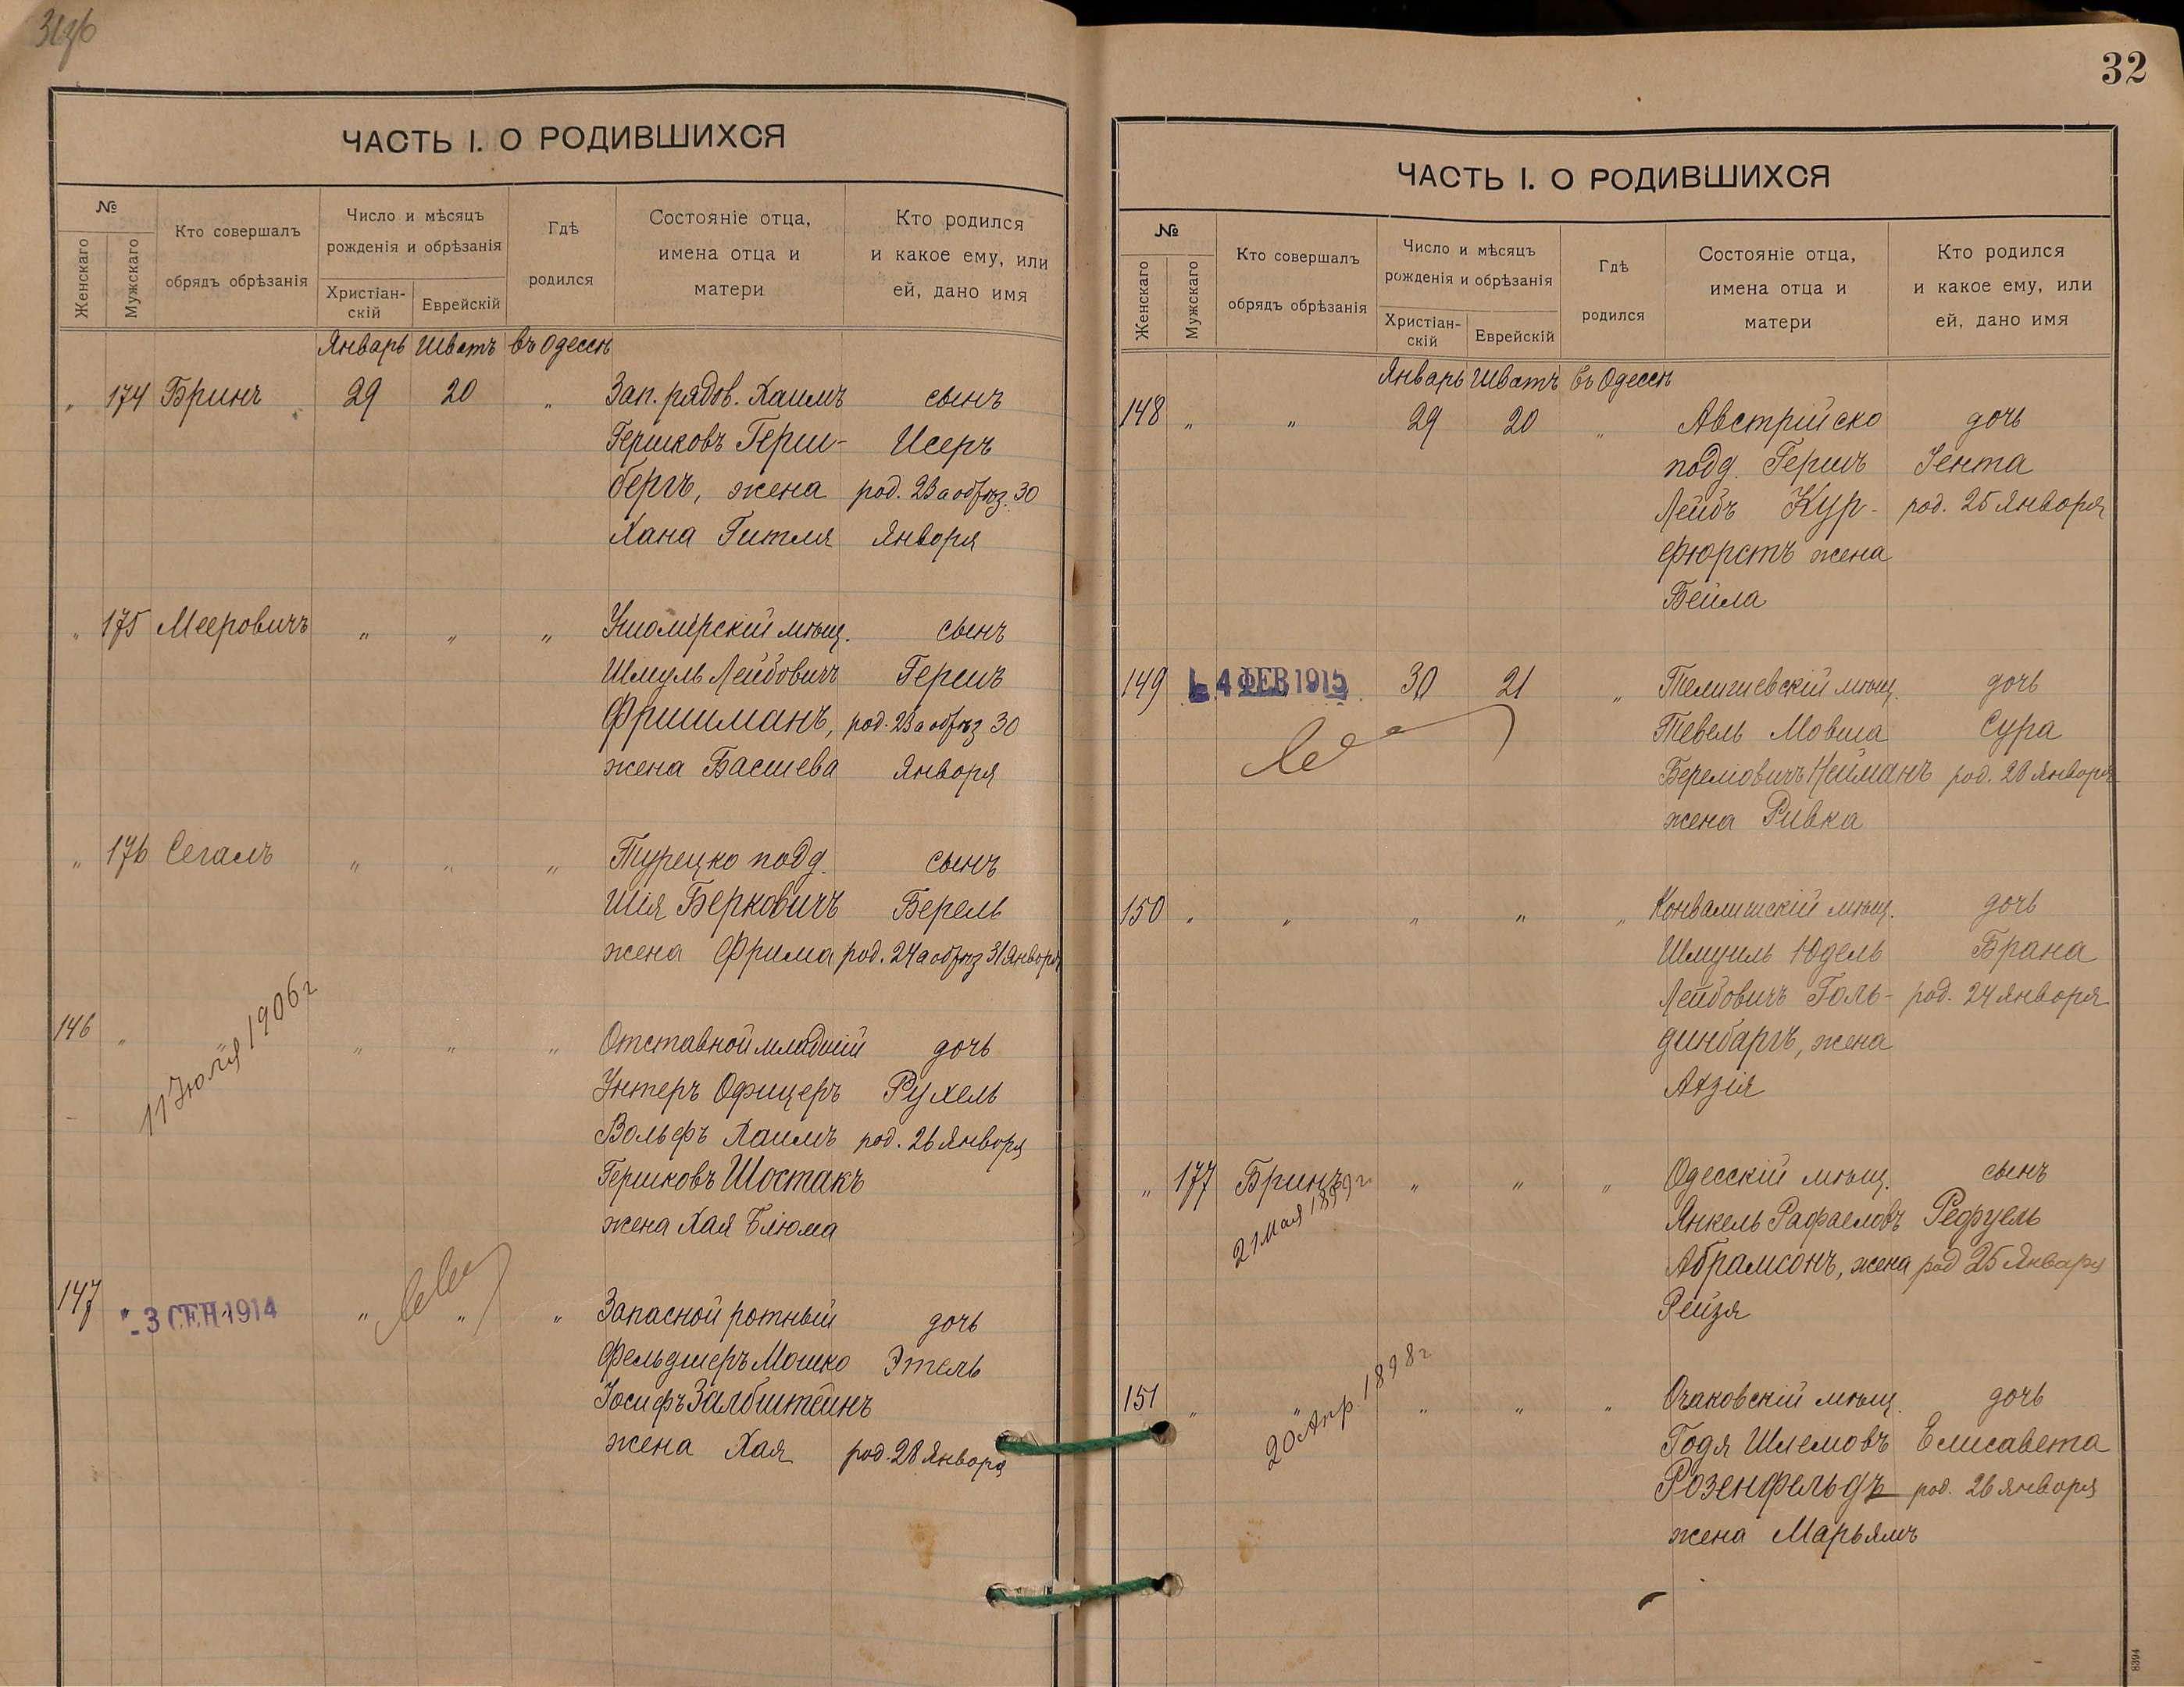 ЧАСТЬ I. О РОДИВШИХСЯ
№
Женскаго
Мужскаго
Кто совершалъ
обрядъ обрѣзанія
Число и мѣсяцъ
рожденія и обрѣзанія
Христіан-
скій
Еврейскій
Гдѣ
родился
Состояніе отца,
имена отца и
матери
Кто родился
и какое ему, или
ей, дано имя
Январь Шватъ въ Одессѣ
" 174 Бринъ 29 20 " Зап. рядов. Хаимъ сынъ
Гершковъ Герш- Исеръ
бергъ, жена род. 23 а обрѣз. 30
Хана Гитля Января
" 175 Мееровичъ " " " мѣщ. сынъ
Шмуль Лейбовичъ Гершъ
Фришманъ, род. 23 а обрѣз 30
жена Басшева Января
" 176 Сегалъ " " " Турецко подд. сынъ
Шія Берковичъ Берель
жена Фрима род. 24 а обрѣз 31 Января
146 " " " " " Отставной младшій дочь
Унтеръ Офицеръ Рухель
Вольфъ Хаимъ род. 26 Января
Гершковъ Шостакъ
жена Хая Блюма
11 Іюля 1906 г
147 " - 3 СЕН 1914 " " " Запасной ротный дочь
Фельдшеръ Мошко Этель
Іосифъ Залбштейнъ
жена Хая род. 28 Января
32
ЧАСТЬ I. О РОДИВШИХСЯ
№
Женскаго
Мужскаго
Кто совершалъ
обрядъ обрѣзанія
Число и мѣсяцъ
рожденія и обрѣзанія
Христіан-
скій
Еврейскій
Гдѣ
родился
Состояніе отца,
имена отца и
матери
Кто родился
и какое ему, или
ей, дано имя
Январь Шватъ въ Одессѣ
148 " " 29 20 " Австрійско дочь
подд. Гершъ Іента
Лейбъ Кур- род. 25 Января
фюрстъ жена
Бейла
149 4 ФЕВ 1915 30 21 " мѣщ. дочь
Тевель Мовша Сура
Берелювичъ Нейманъ род. 28 Января
жена Ривка
150 " " " " " мѣщ. дочь
Шмуиль Юдель Брана
Лейбовичъ Голь- род. 24 Января
динбаргъ, жена
" 177 Бринъ " " " Одесскій мѣщ. сынъ
21 Мая 1899 г
Янкель Рафаеловъ Рефуель
Абрамсонъ, жена род 25 Января
Рейзя
151 " " " " " Очаковскій мѣщ. дочь
20 Апр. 1898 г
Годя Шлемовъ Елисавета
Розенфельдъ род. 26 Января
жена Марьямъ
8394